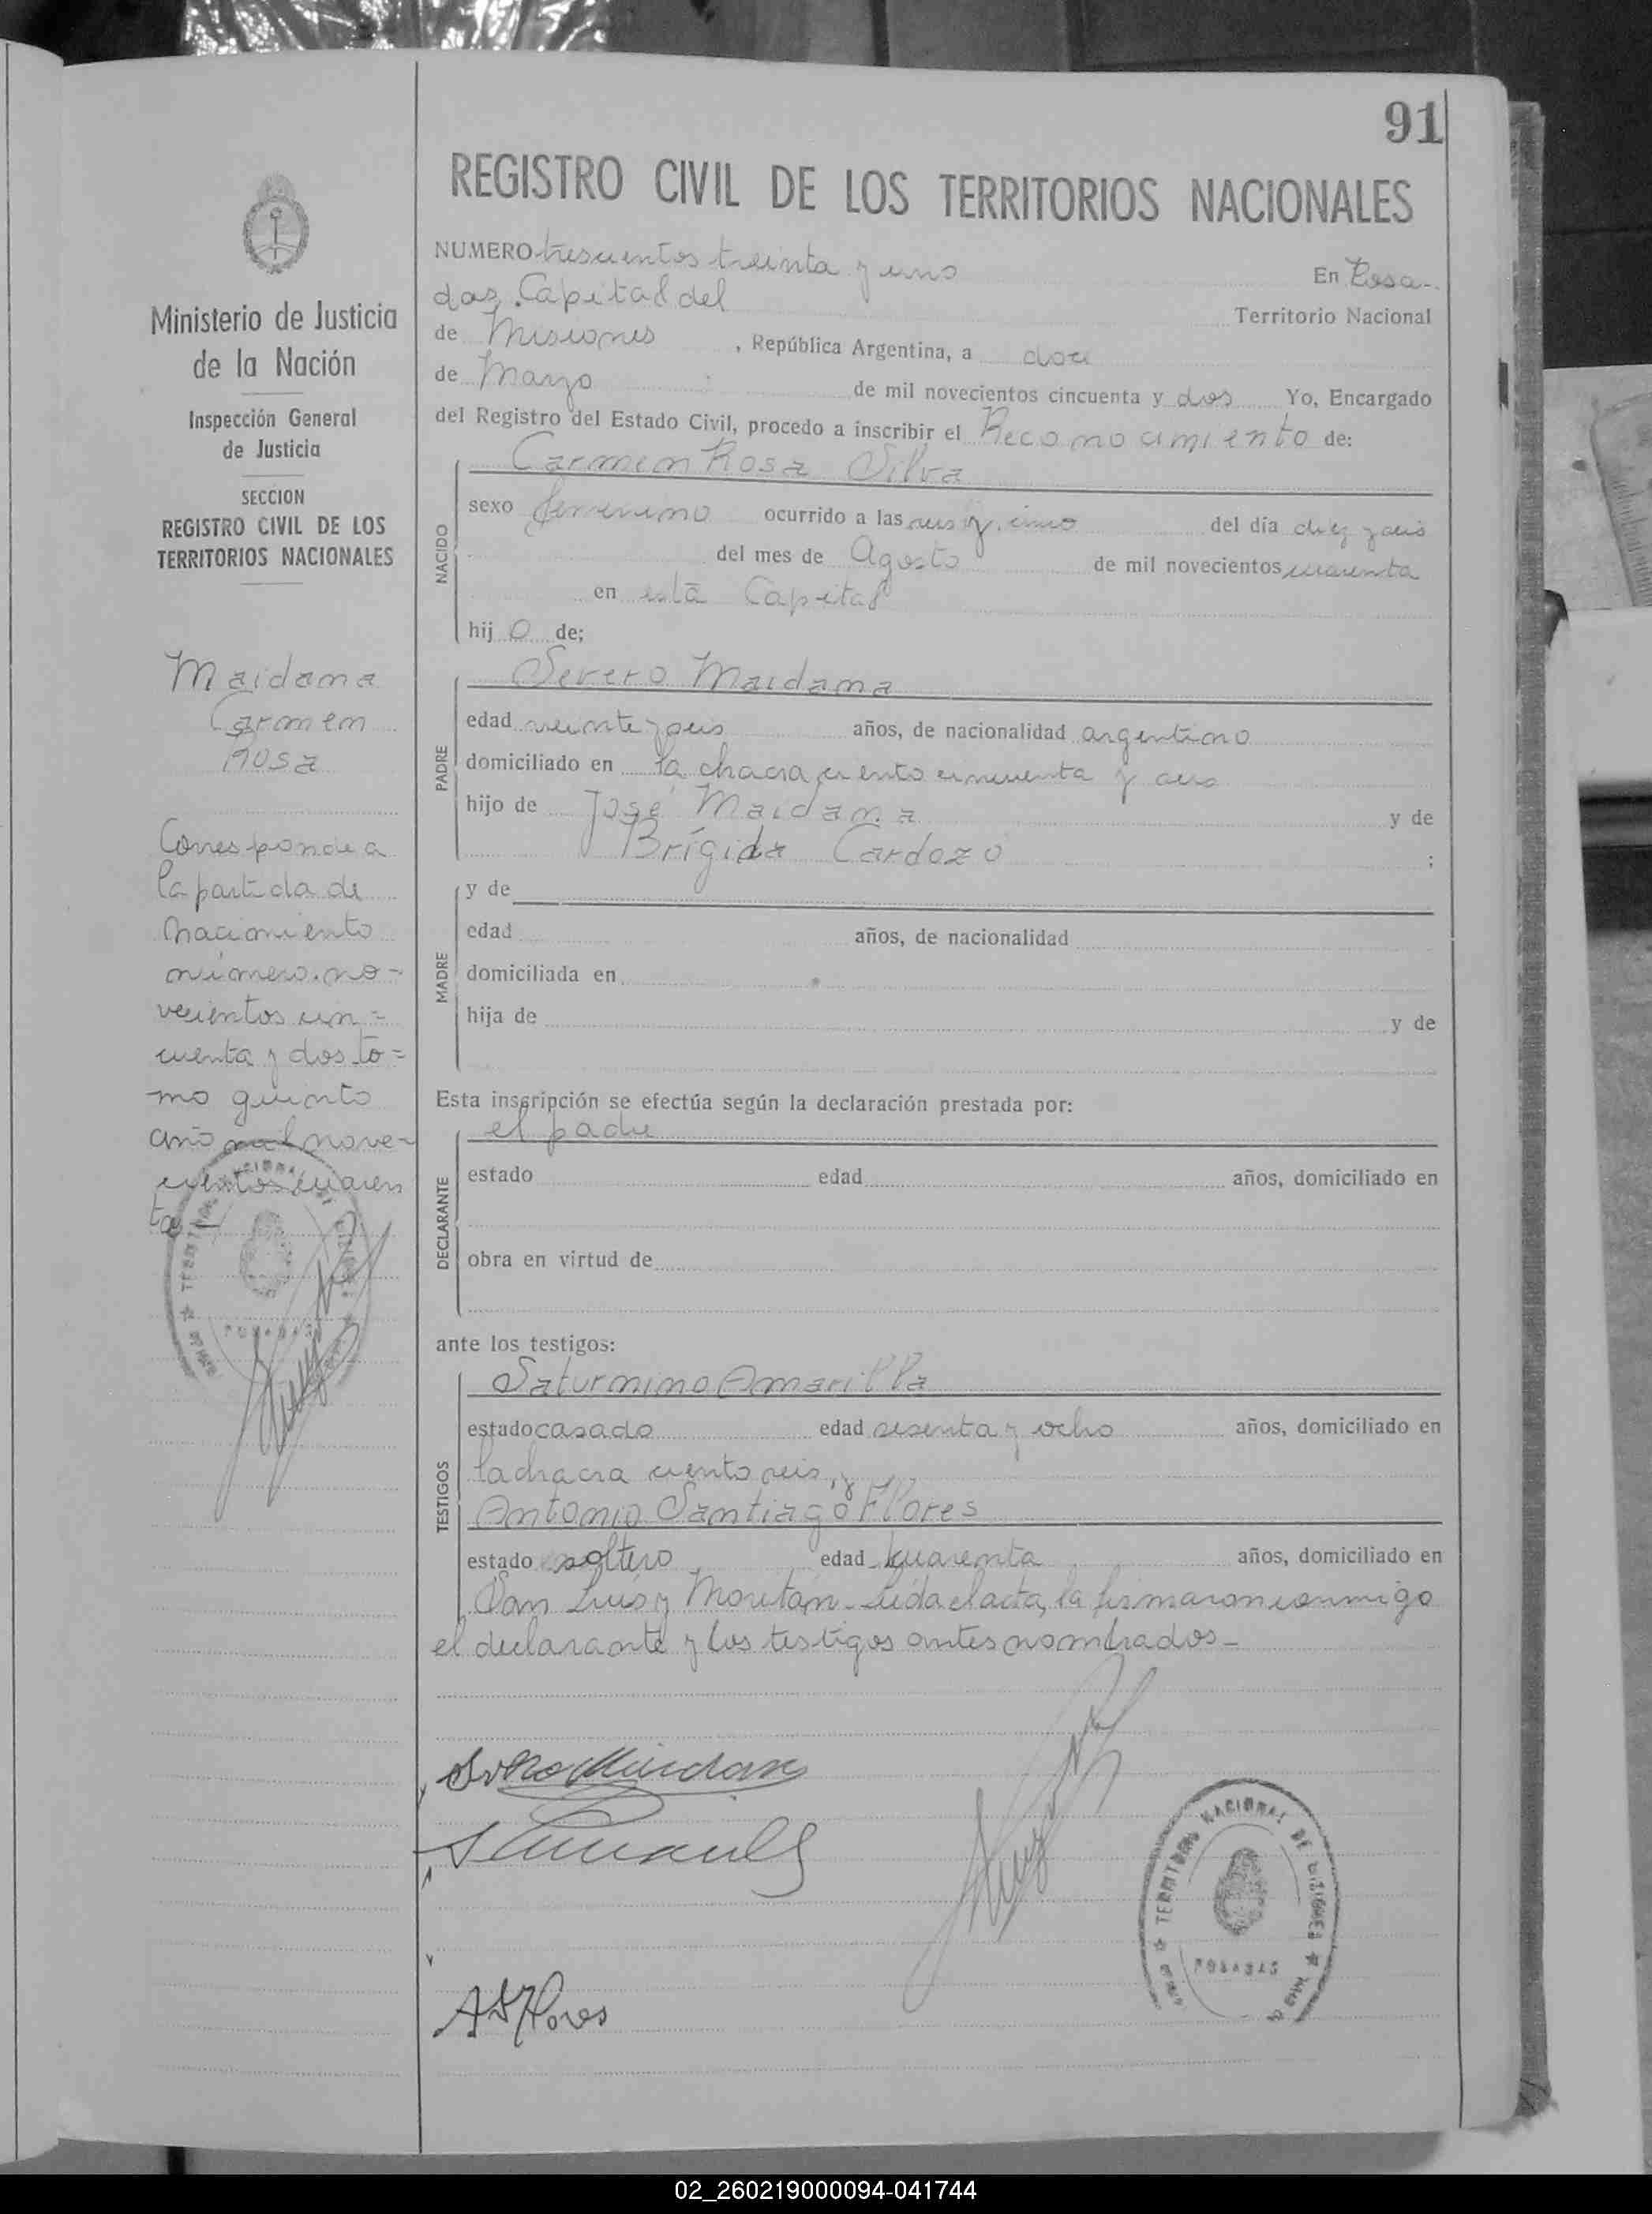 91
REGISTRO CIVIL DE LOS TERRITORIOS NACIONALES
NUMERO trescientos treinta y uno En Posa-
das, Capital del Territorio Nacional
de Misiones, República Argentina, a doce
de Marzo de mil novecientos cincuenta y dos Yo, Encargado
del Registro del Estado Civil, procedo a inscribir el Reconocimiento de:
Carmen Rosa Silva
NACIDO
sexo femenino ocurrido a las seis y cinco del día diez y seis
del mes de Agosto de mil novecientos cuarenta
en esta Capital
hij o de;
Severo Maidana
PADRE
edad veinte y seis años, de nacionalidad argentino
domiciliado en la chacra ciento cincuenta y seis
hijo de José Maidana y de
Brígida Cardozo ;
MADRE
y de
edad años, de nacionalidad
domiciliada en
hija de y de
Esta inscripción se efectúa según la declaración prestada por:
el padre
DECLARANTE
estado edad años, domiciliado en
obra en virtud de
ante los testigos:
Saturnino Amarilla
TESTIGOS
estado casado edad sesenta y ocho años, domiciliado en
la chacra ciento seis, y
Antonio Santiago Flores
estado soltero edad cuarenta años, domiciliado en
San Luis y Moritán - Leida el acta, la firmaron conmigo
el declarante y los testigos antes nombrados -
Severo Maidana
ASFlores
TERRITORIO NACIONAL DE MISIONES
POSADAS
Ministerio de Justicia
de la Nación
Inspección General
de Justicia
SECCION
REGISTRO CIVIL DE LOS
TERRITORIOS NACIONALES
Maidana
Carmen
Rosa
Corresponde a
la partida de
nacimiento
número no-
vecientos cin=
cuenta y dos to=
mo quinto
año mil nove-
cientos cuaren
ta -
POSADAS
02_260219000094-041744